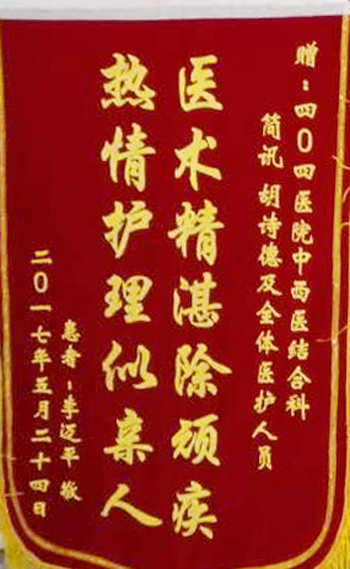 赠：四〇四医院中西医结合科
简讯 胡诗德及全体医护人员
医术精湛除顽疾
热情护理似亲人
患者：李迈平敬
二〇一七年五月二十四日